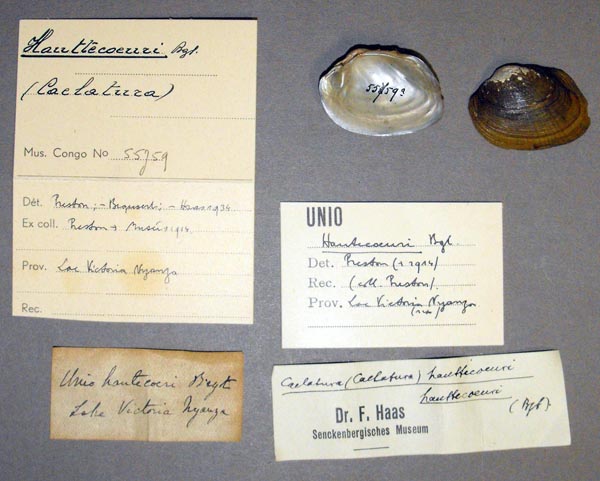 Hauttecoeuri Bgt.
(Caelatura)
Mus. Congo No 55759
Dét. Preston; - Bequaert; - Haas 1934
Ex coll. Preston → Musée 1914
Prov. Lac Victoria Nyanza
Rec.
55759a
UNIO
Hautecoeuri Bgt.
Det. Preston (1914)
Rec. (coll. Preston).
Prov. Lac Victoria Nyanza
Unio hautecoeri Brgt
Lake Victoria Nyanza
Caelatura (Caelatura) hauttecoeuri
hauttecoeuri
(Bgt.)
Dr. F. Haas
Senckenbergisches Museum